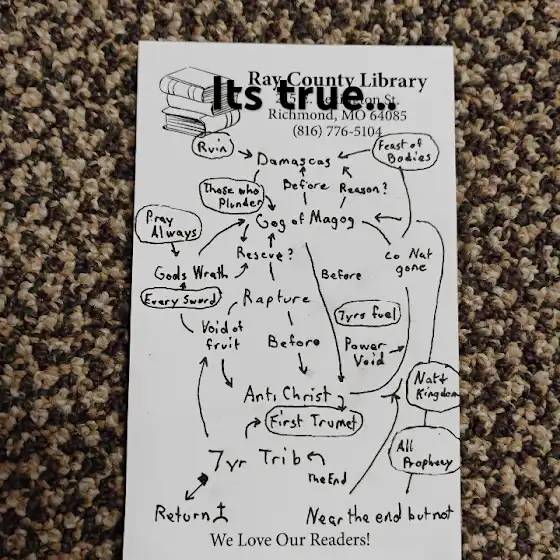 Ray County Library
Its true...
Richmond, MO 64085
(816) 776-5104
Ruin
Damascas
Feast of
Bodies
Those who
Plunder
Before
Reason?
Pray
Always
Gog of Magog
Rescue?
Co Nat
gone
Gods Wrath
Before
Every Sword
Rapture
7yrs fuel
Void of
fruit
Before
Power
Void
Anti Christ
Nat +
Kingdom
First Trumet
All
Prophecy
7yr Trib
The End
Return
Near the end but not
We Love Our Readers!